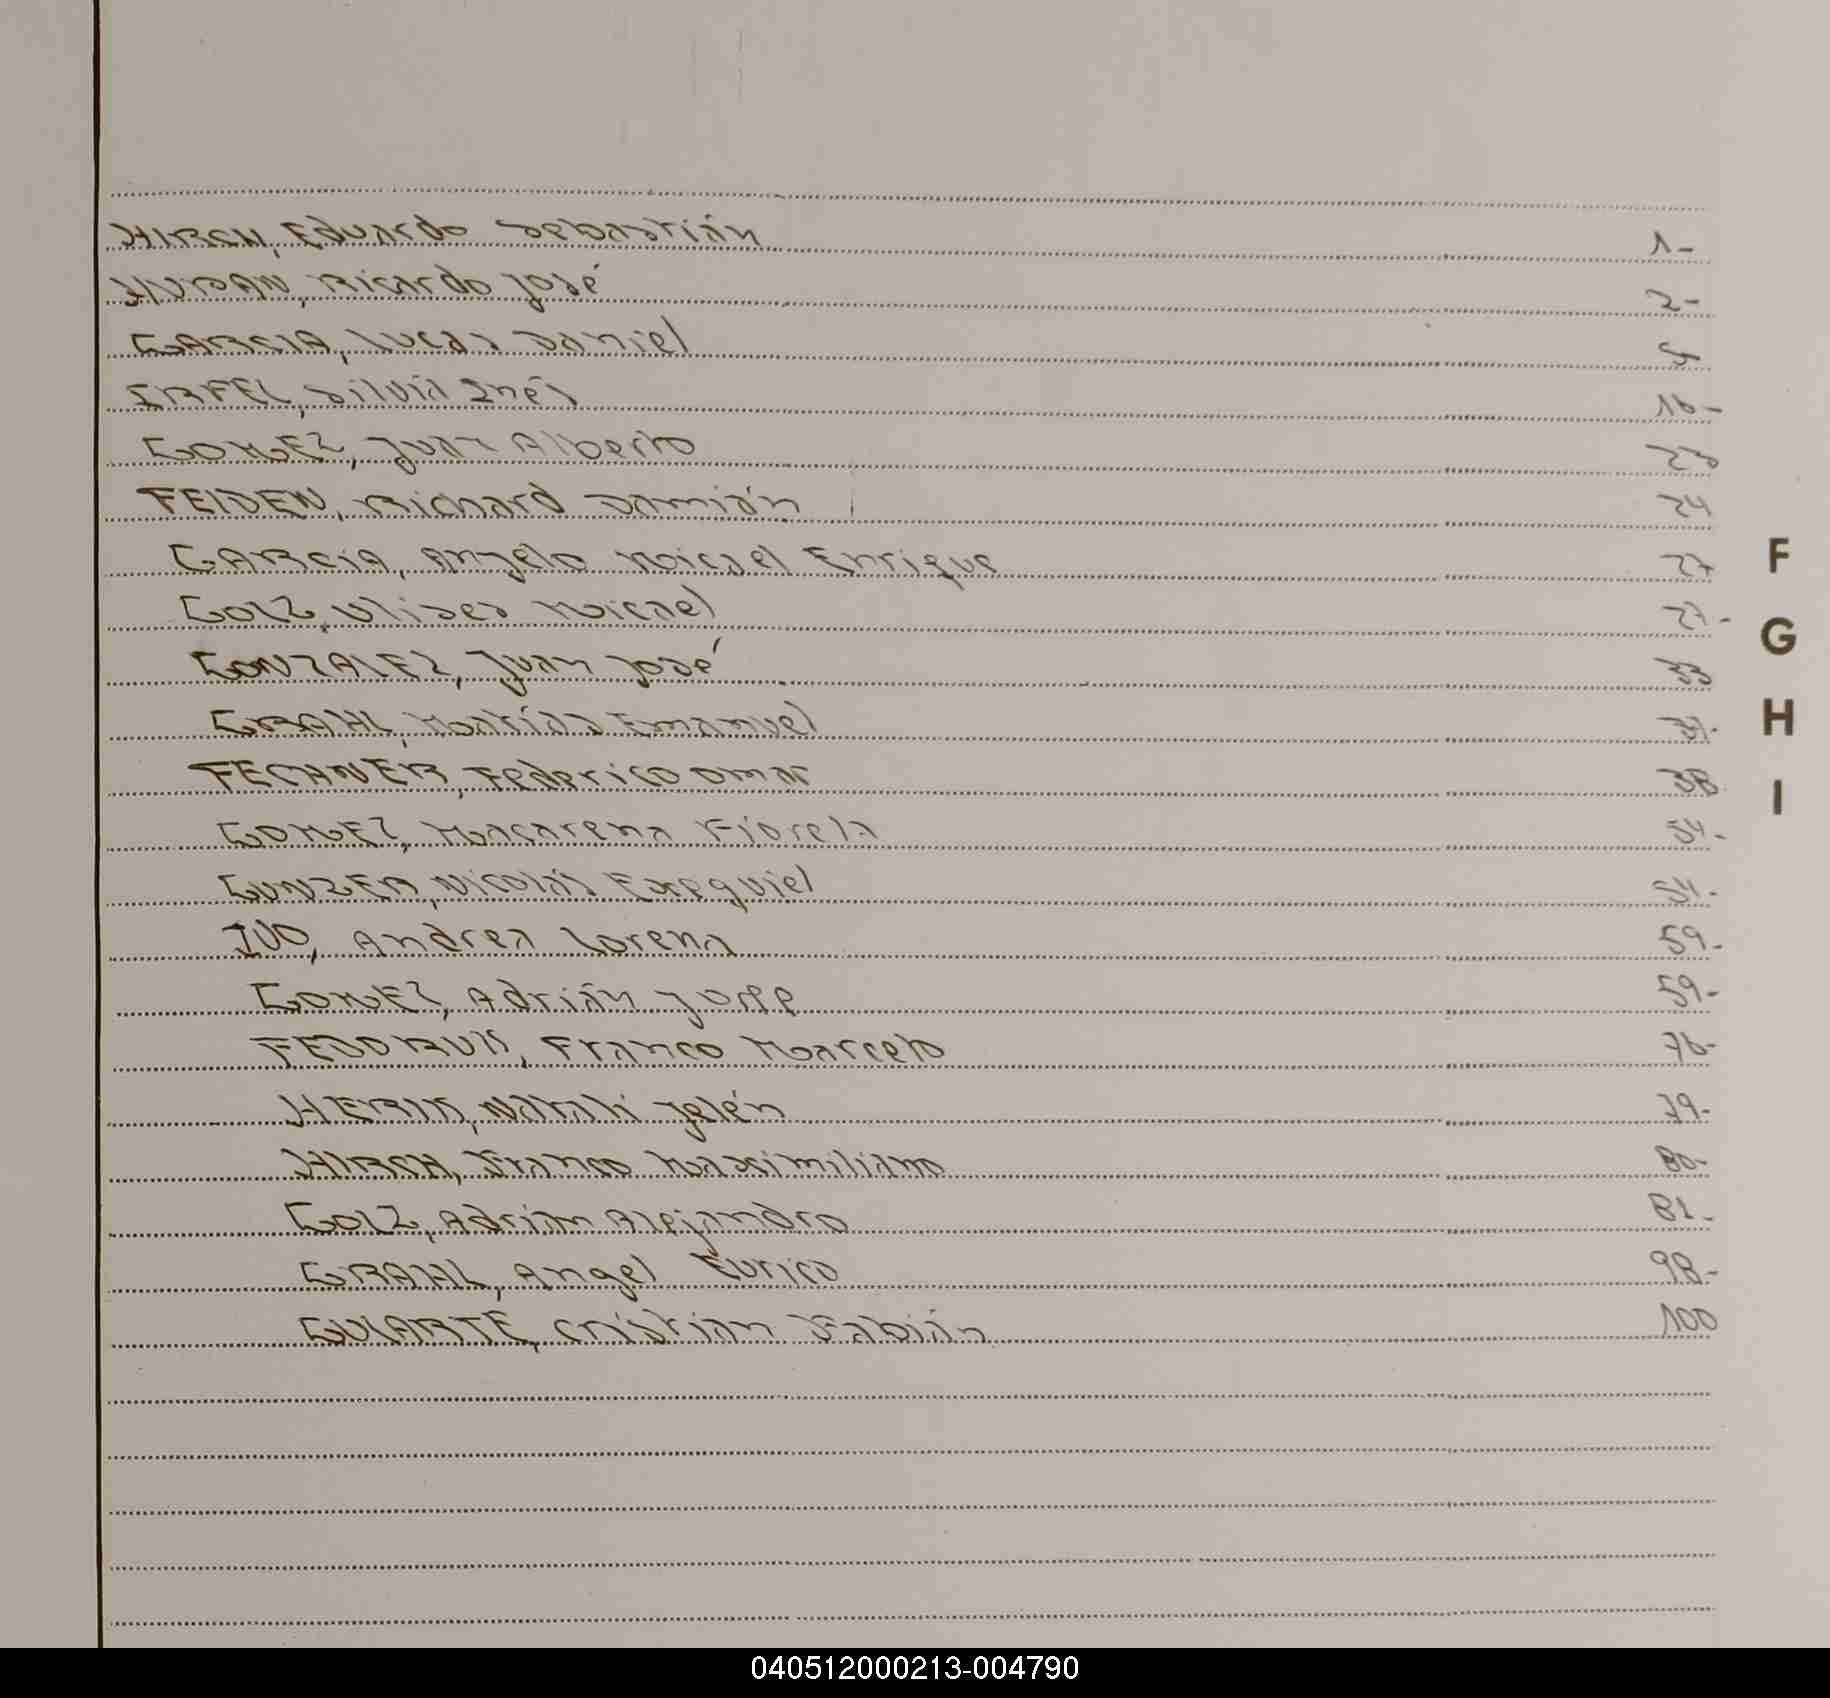 HIRCH, Eduardo Sebastián 1-
HUDAN, Ricardo José 2-
GARCIA, Lucas Daniel 4
IRFEL, Silvia Inés 16-
GOMEZ, Juan Alberto 23
FEIDEN, Richard Damián 24
GARCIA, Angelo Micael Enrique 27
GOLZ, Ulises Micael 27-
GONZALEZ, Juan José 33
GRAHL, Matías Emanuel
FECHNER, Federico Omar 38
GOMEZ, Macarena Fiorela 54-
GUNZER, Nicolás Exequiel 54-
IVO, Andrea Lorena 59-
GOMEZ, Adrián Jorge 59-
FEDORUK, Franco Marcelo 76-
HERIK, Natali Yelén 79-
HIRCH, Franco Maximiliano 80-
GOLZ, Adrián Alejandro 81-
GRAHL, Angel Eurico 98-
GULARTE, Cristian Fabián 100
F
G
H
I
040512000213-004790